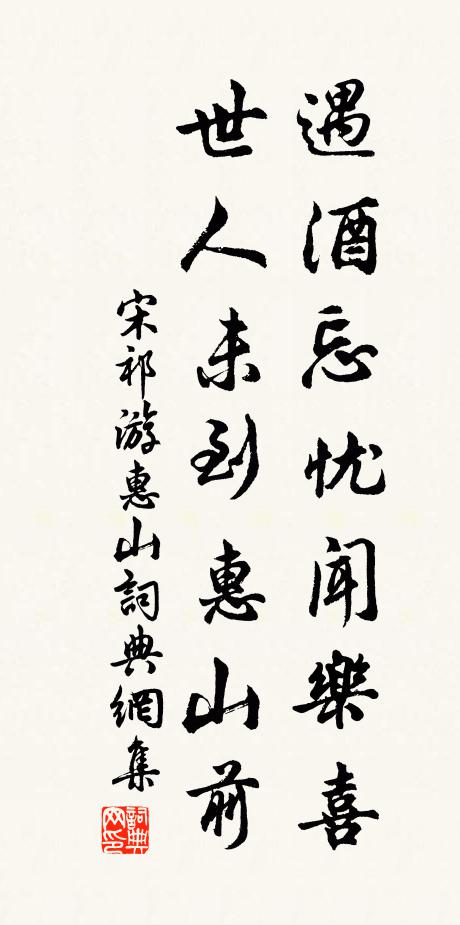 遇酒忘忧闻樂喜
世人未到惠山前
宋祁游惠山詞典網集
詞典网印